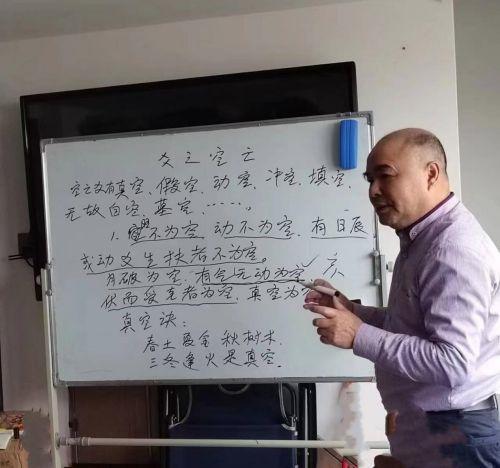 爻之空亡
空之爻有真空、假空、动空、冲空、填空、
无故自空、墓空、……。
1. 旺不为空,动不为空,有日辰
或动爻生扶者不为空。
月破为空,有气无动为空
伏而受克者为空,真空为空
真空诀:
春土夏金秋树木
三冬逢火是真空.